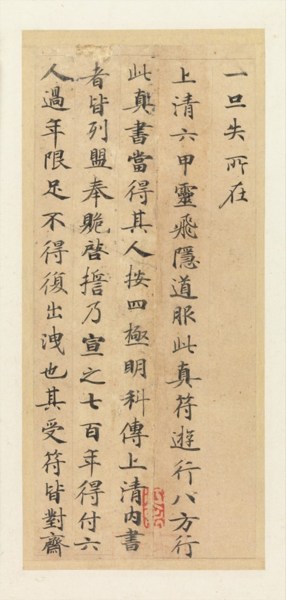 一旦失所在
上清六甲靈飛隱道服此真符遊行八方行
此真書當得其人按四極明科傳上清內書
者皆列盟奉跪啓擔乃宣之七百年得付六
人過年限足不得復出洩也其受符皆對齋